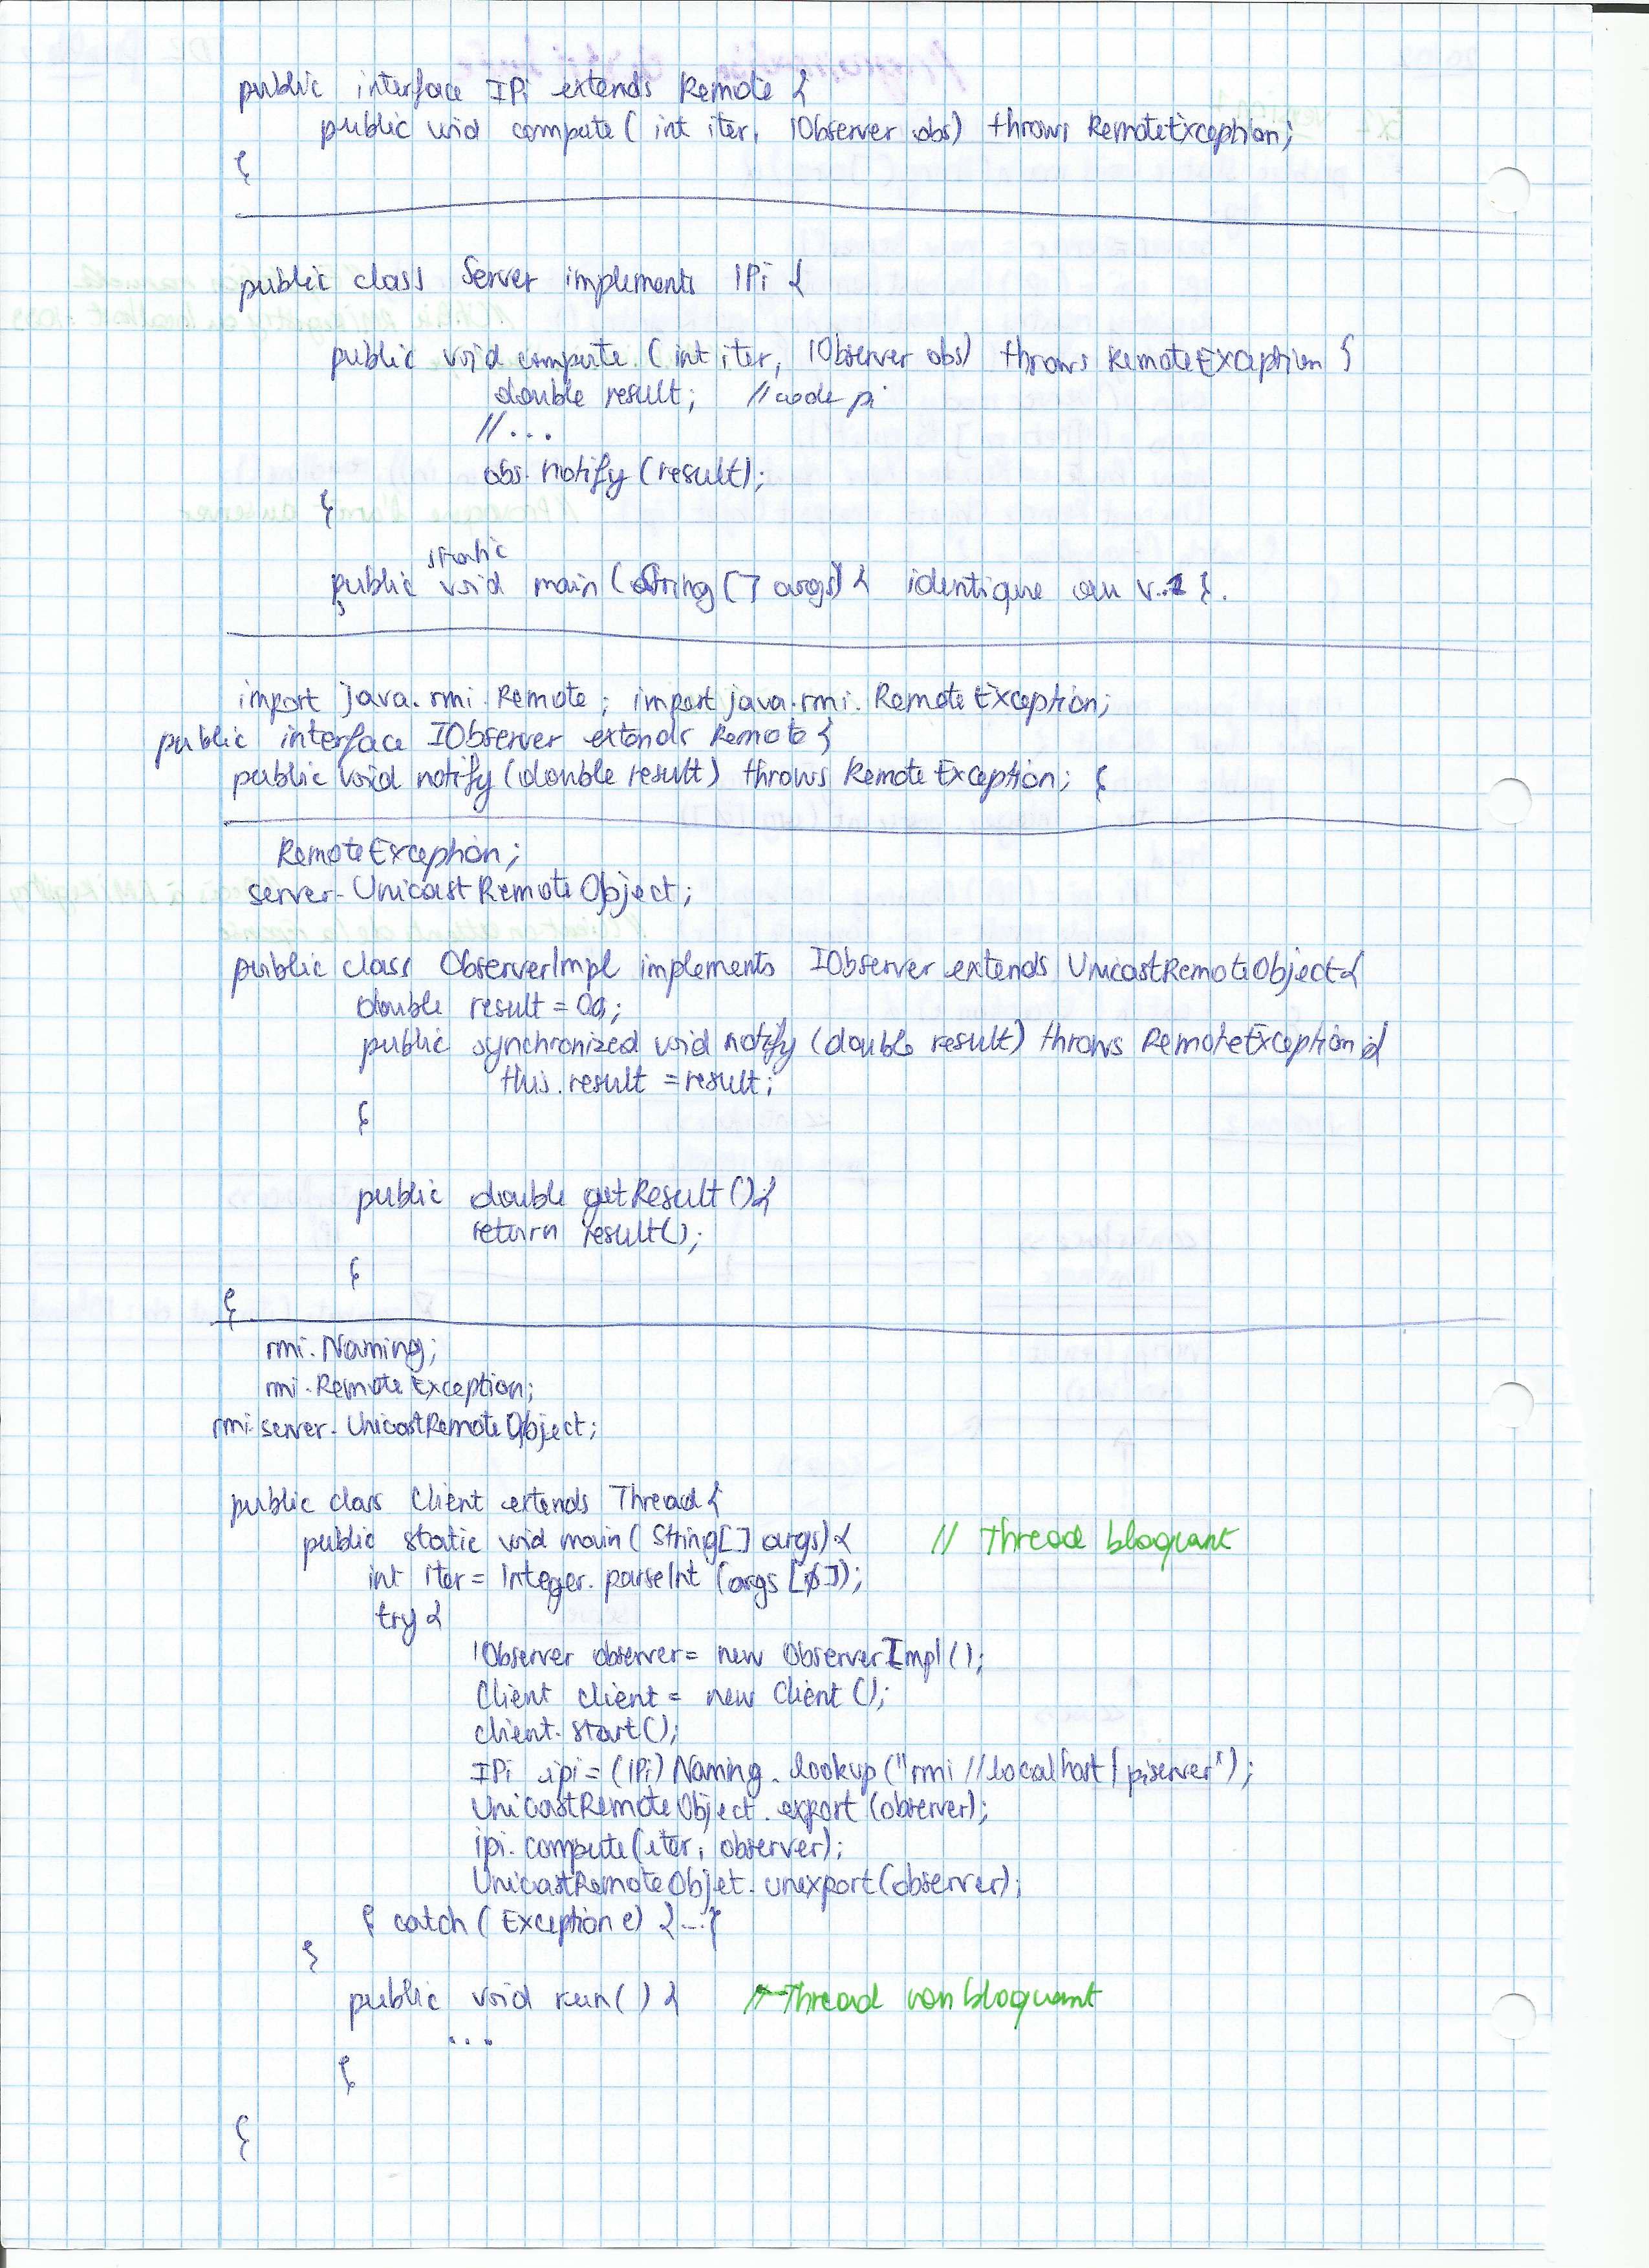 public interface IPi extends Remote {
public void compute( int iter, IObserver obs) throws RemoteException;
}
public class Server implements IPi {
public void compute ( int iter, IObserver obs) throws RemoteException {
double result; // code pi
// ...
obs. notify (result);
}
static
public void main (String [] args) { identique au v.1 }.
}
import java.rmi.Remote ; import java.rmi.RemoteException;
public interface IObserver extends Remote {
public void notify (double result) throws RemoteException; }
RemoteException;
server.UnicastRemoteObject;
public class ObserverImpl implements IObserver extends UnicastRemoteObject {
double result = 00;
public synchronized void notify (double result) throws RemoteException {
this.result = result;
}
public double getResult () {
return result();
}
}
rmi.Naming;
rmi.RemoteException;
rmi.server.UnicastRemoteObject;
public class Client extends Thread {
public static void main( String[] args) { // Thread bloquant
int iter = Integer.parseInt (args [0]);
try {
IObserver observer = new ObserverImpl ();
Client client = new Client ();
client.start();
IPi ipi = (IPi) Naming.lookup ("rmi //localhost/piserver");
UnicastRemoteObject.export (observer);
ipi.compute(iter, observer);
UnicastRemoteObjet.unexport(observer);
} catch ( Exception e) {...}
}
public void run() { // Thread non bloquant
...
}
}